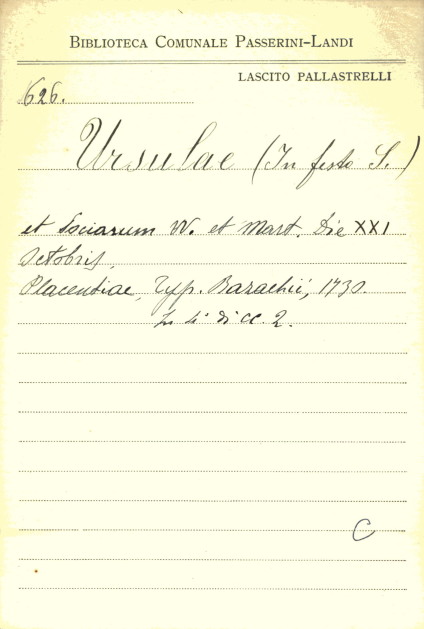 BIBLIOTECA COMUNALE PASSERINI-LANDI
LASCITO PALLASTRELLI
626.
Ursulae (In festo S.)
et Sociarum VV. et Mart. Die XXI
Octobris,
Placentiae, Typ. Bazachii, 1730.
In 4° di cc. 2.
C